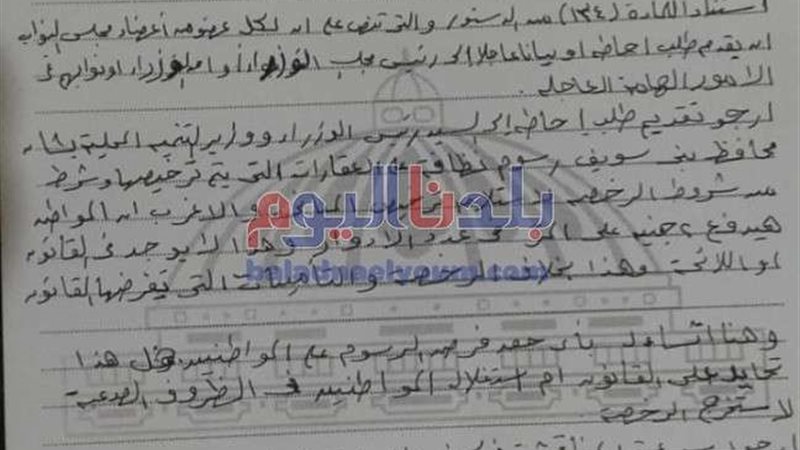 استناداً للمادة (١٣٤) من الدستور والتى تنص على ان لكل عضو من أعضاء مجلس النواب
ان يقدم طلب احاطه او بيانا عاجلا الى رئيس مجلس الوزراء او احد الوزراء او نوابهم فى
الامور الهامة العاجله .
ارجو تقديم طلب احاطه إلى السيد رئيس الوزراء ووزير التنميه المحلية بشان
محافظ بنى سويف رسوم نظافة على العقارات التى يتم ترخيصها وشرط
من شروط الرخصه والاغرب ان المواطن
هيدفع ٢ جنيه على المتر فى عدد الادوار وهذا لا يوجد فى القانون
او اللائحة وهذا بخلاف الرخصه والتامينات التى يفرضها القانون
بلدنا اليوم
baladnaelyoum.com
وهنا اتساءل بأى حق فرض الرسوم على المواطنين وهل هذا
تحايل على القانون ام استغلال المواطنين فى الظروف الصعبة
لاستخراج الرخصه .